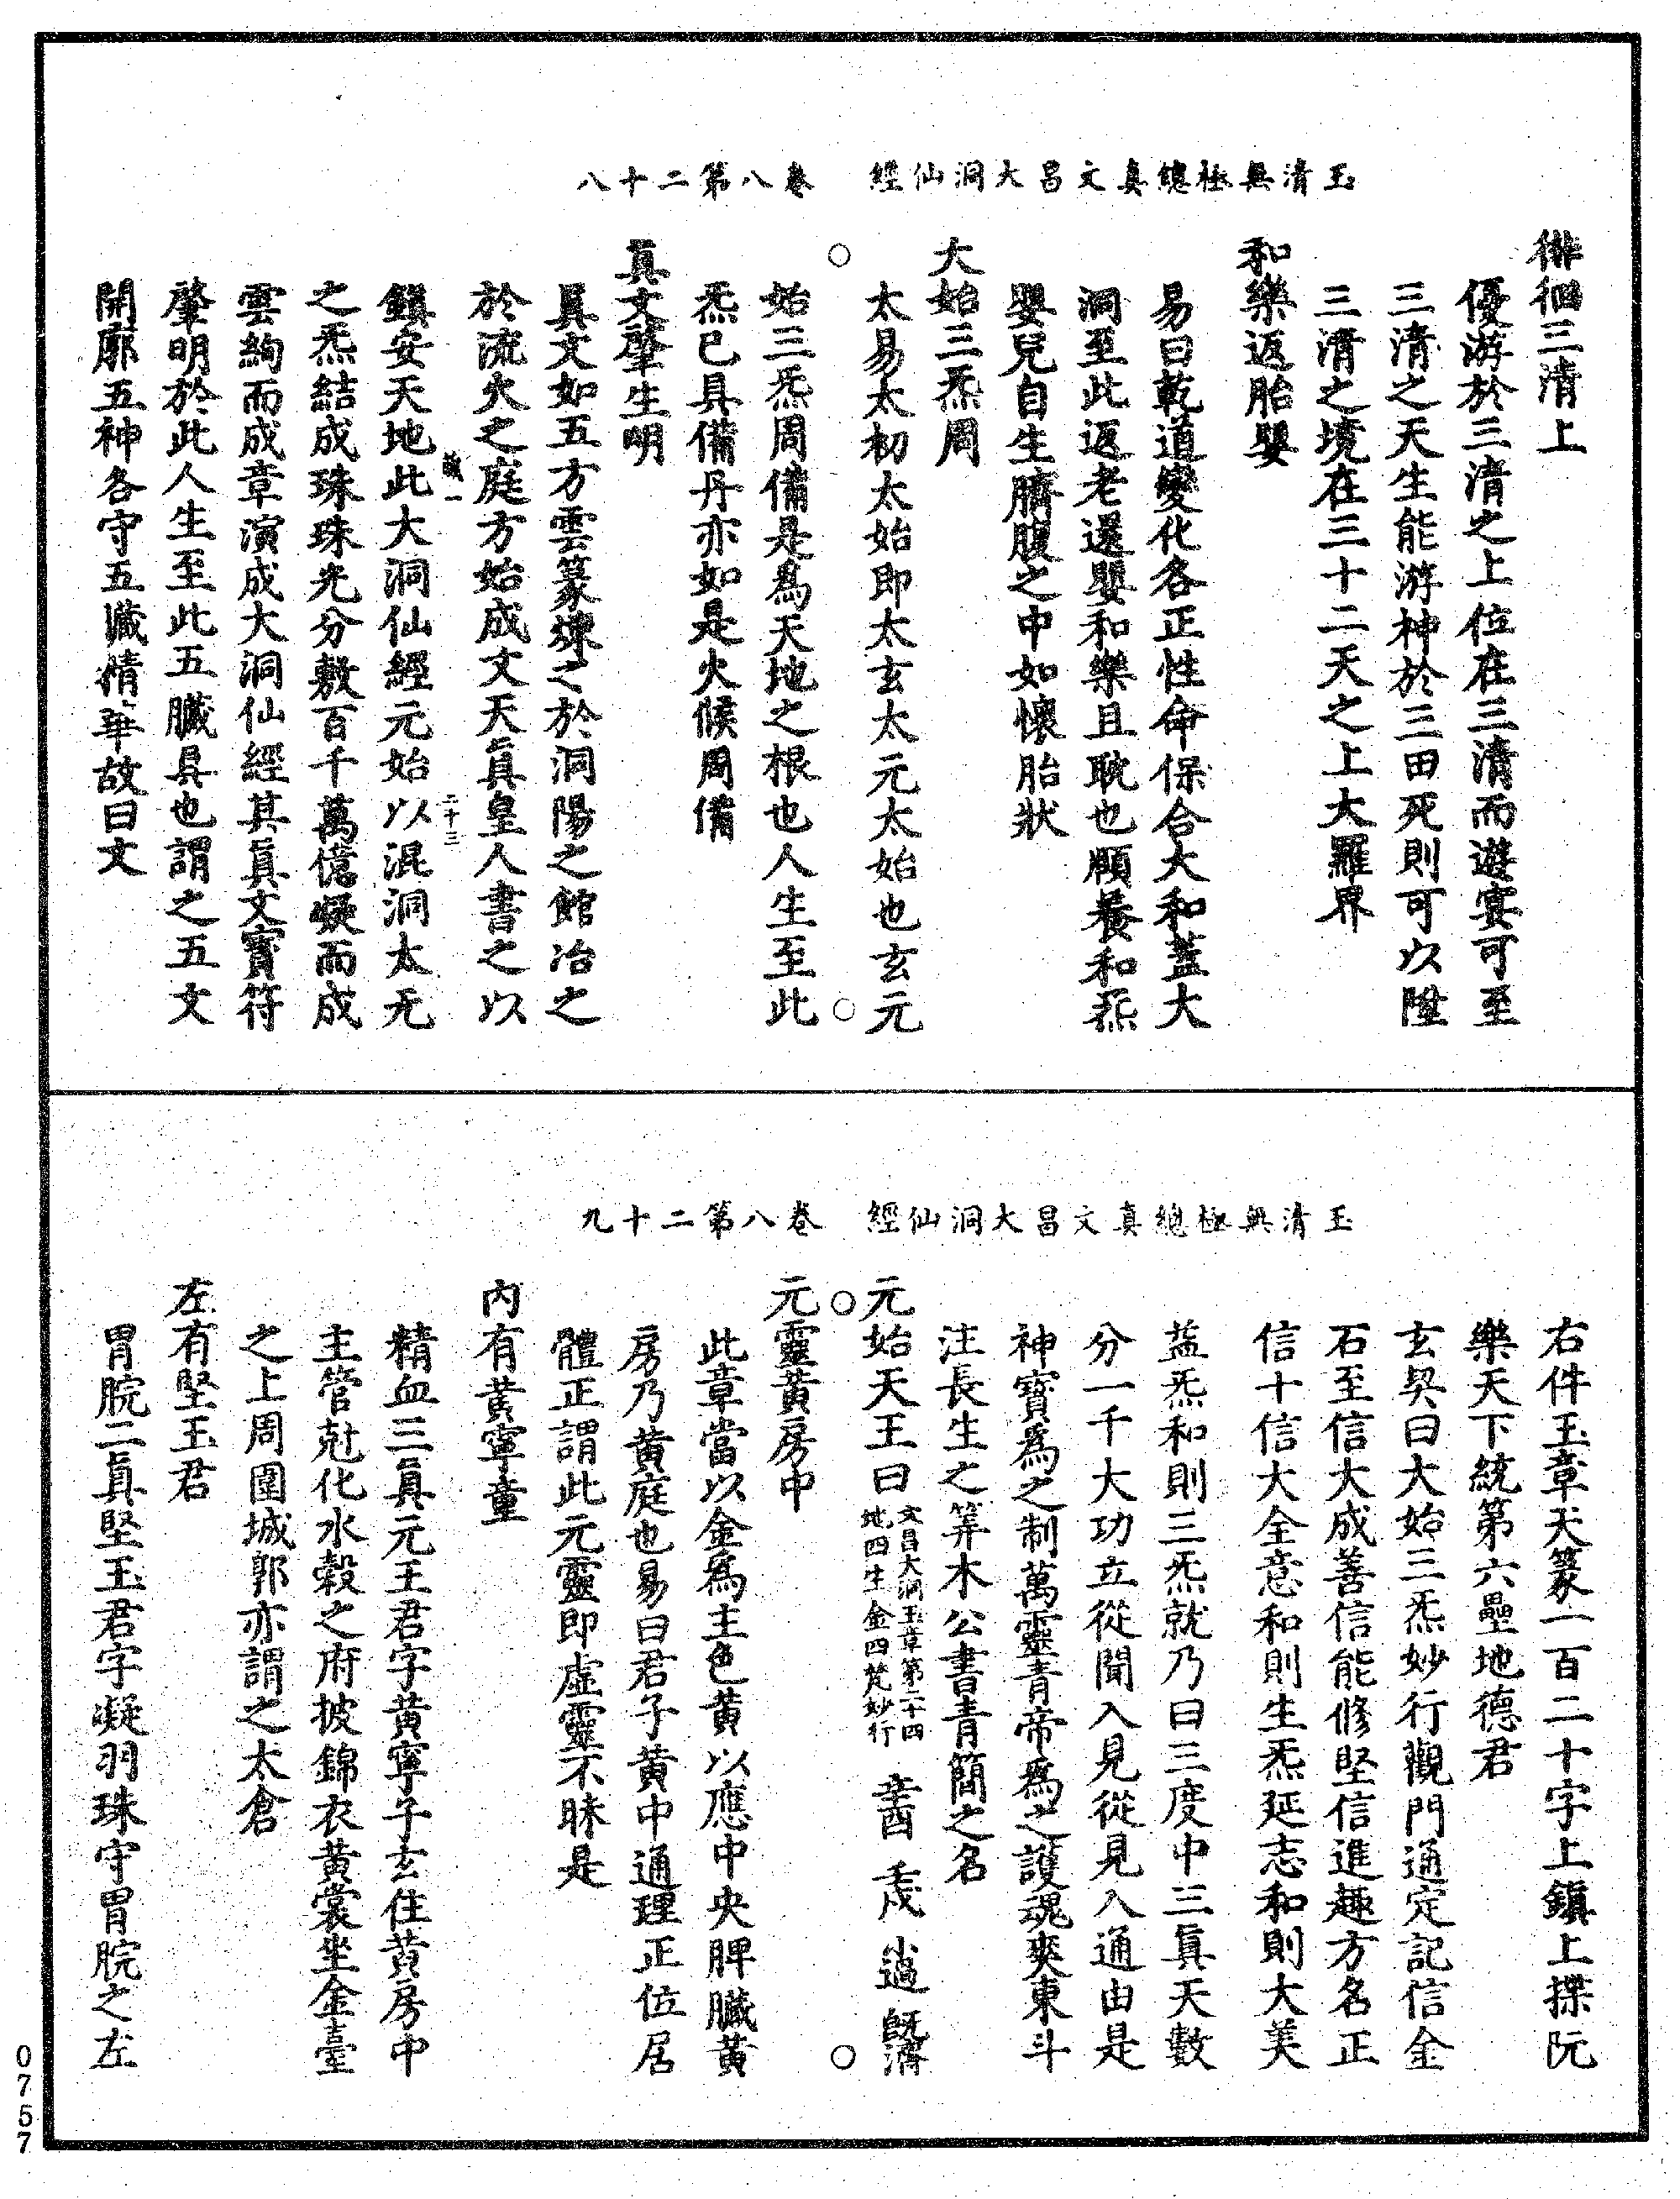 玉清無極總真文昌大洞仙經　卷八第二十八
徘徊三清上
優游於三清之上位在三清而遊宴可至
三清之天生能游神於三田死則可以陞
三清之境在三十二天之上大羅界
和樂返胎嬰
易曰乾道變化各正性命保合大和蓋大
洞至此返老還嬰和樂且耽也頤養和炁
嬰兒自生臍腹之中如懷胎狀
大始三炁周
太易太初太始即太玄太元太始也玄元
始三炁周備是為天地之根也人生至此
炁已具備丹亦如是火候周備
真文肇生明
真文如五方雲篆煉之於洞陽之館冶之
於流火之庭方始成文天真皇人書之以
鎮安天地此大洞仙經元始以混洞太无
之炁結成珠珠光分敷百千萬億凝而成
雲絢而成章演成大洞仙經其真文寶符
肇明於此人生至此五臟具也謂之五文
開廓五神各守五臟精華故曰文
二十三
玉清無極總真文昌大洞仙經　卷八第二十九
右件玉章天篆一百二十字上鎮上揲阮
樂天下統第六壘地德君
玄契曰大始三炁妙行觀門通定記信金
石至信大成善信能修堅信進趣方名正
信十信大全意和則生炁延志和則大美
蓋炁和則三炁就乃曰三度中三真天數
分一千大功立從聞入見從見入通由是
神寶為之制萬靈青帝為之護魂爽東斗
注長生之筭木公書青簡之名
元始天王曰 文昌大洞玉章第二十四 地四生金四梵妙行 辛酉 壬戌 小過 既濟
元靈黃房中
此章當以金為主色黃以應中央脾臟黃
房乃黃庭也易曰君子黃中通理正位居
體正謂此元靈即虛靈不昧是
內有黃寧童
精血三真元王君字黃寧子玄住黃房中
主管尅化水穀之府披錦衣黃裳坐金臺
之上周圍城郭亦謂之太倉
左有堅玉君
胃脘二真堅玉君字凝羽珠守胃脘之左
0757